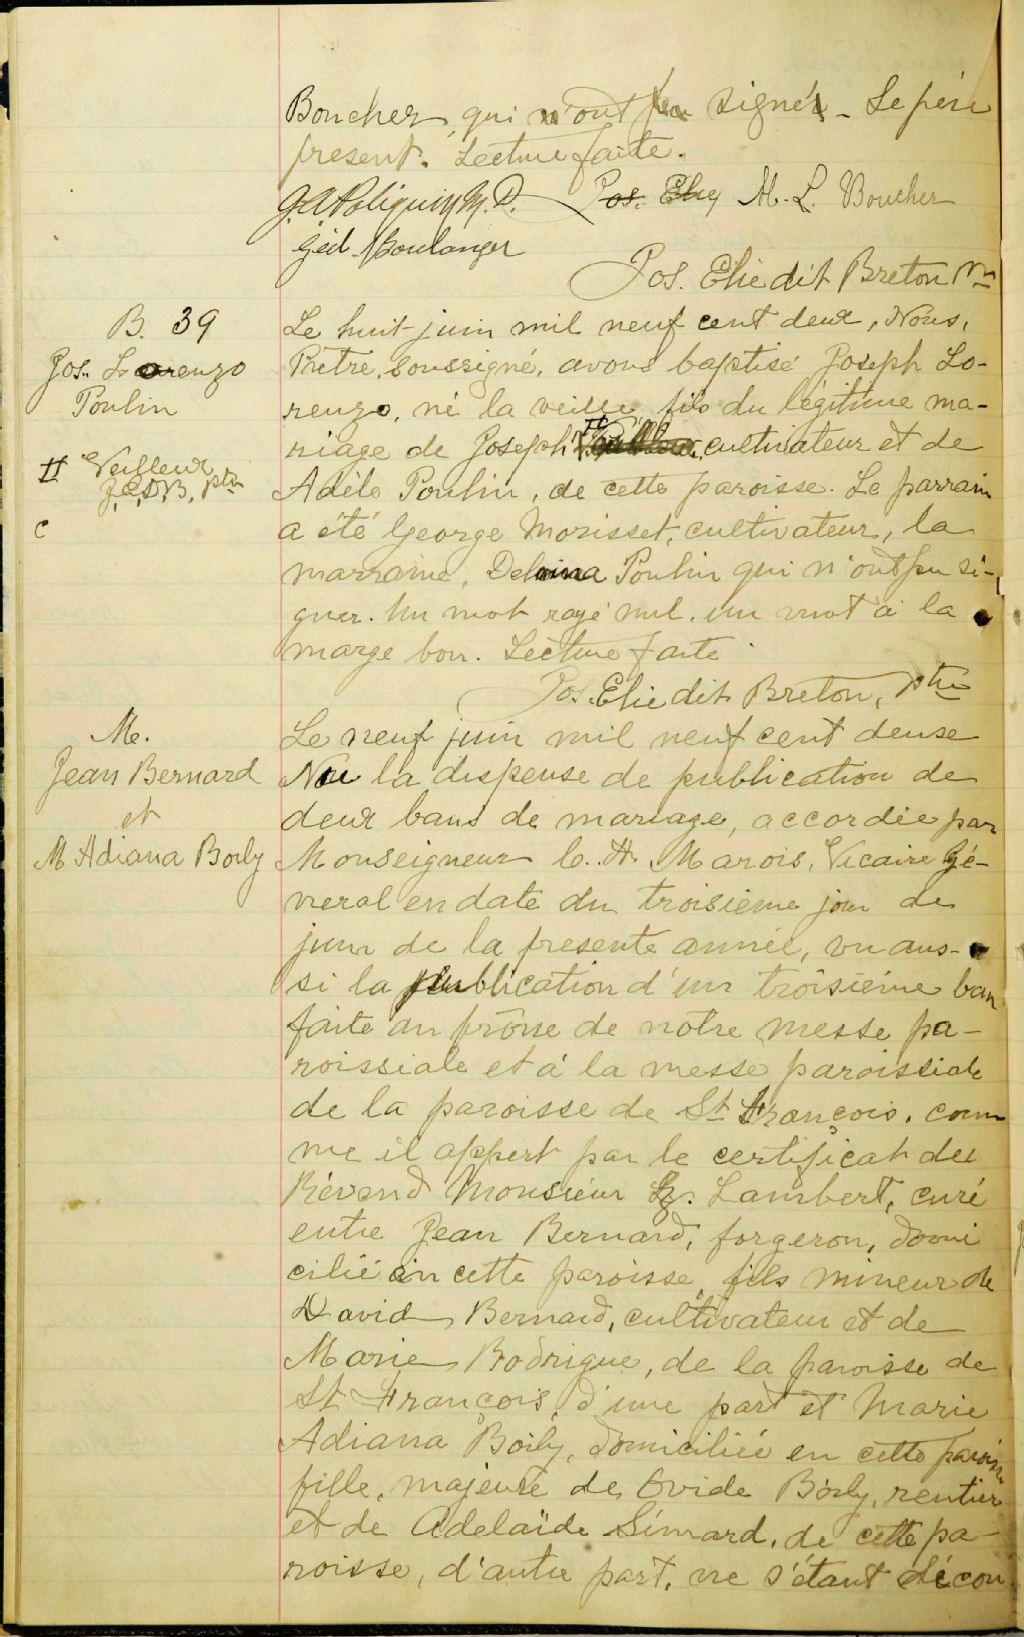 Boucher, qui n'ont pu signér - Le père
present. Lecture faite.
J.A Poliquin M.D. Jos. Elie, M.-L. Boucher
Géd. Boulanger
Jos. Elie dit Breton
B. 39
Jos. Lorenzo
Poulin
# Veilleux
J.E.D.B, ptre
c
Le huit juin mil neuf cent deux, Nous,
Prêtre, soussigné, avons baptisé Joseph Lo-
renzo, né la veille, fils du légitime ma-
riage de Joseph # cultivateur et de
Adèle Poulin, de cette paroisse. Le parrain
a été George Morisset, cultivateur, la
marraine, Delvina Poulin qui n'ont pu si-
gner. Un mot rayé nul. un mot à la
marge bon. Lecture faite
Jos. Elie dit Breton, ptre
M.
Jean Bernard
et
M Adiana Boily
Le neuf juin mil neuf cent deuse
Vu la dispense de publication de
deux bans de mariage, accordée par
Monseigneur C. A. Marois, Vicaire Gé-
neral en date du troisième jour de
juin de la presente année, vu aus-
si la publication d'un troisième ban
faite au prône de nôtre messe pa-
roissiale et à la messe paroissiale
de la paroisse de St François, com
me il appert par le certificat du
Rèvend Monsieur Lambert, curé
entre Jean Bernard, forgeron, domi
cilié en cette paroisse, fils mineur de
David Bernard, cultivateur et de
Marie Rodrigue, de la paroisse de
St François, d'une part et Marie
Adiana Boily, domiciliée en cette paroisse
fille, majeure de Ovide Boily, rentier
et de Adelaïde Simard, de cette pa-
roisse, d'autre part, ne s'étant décou